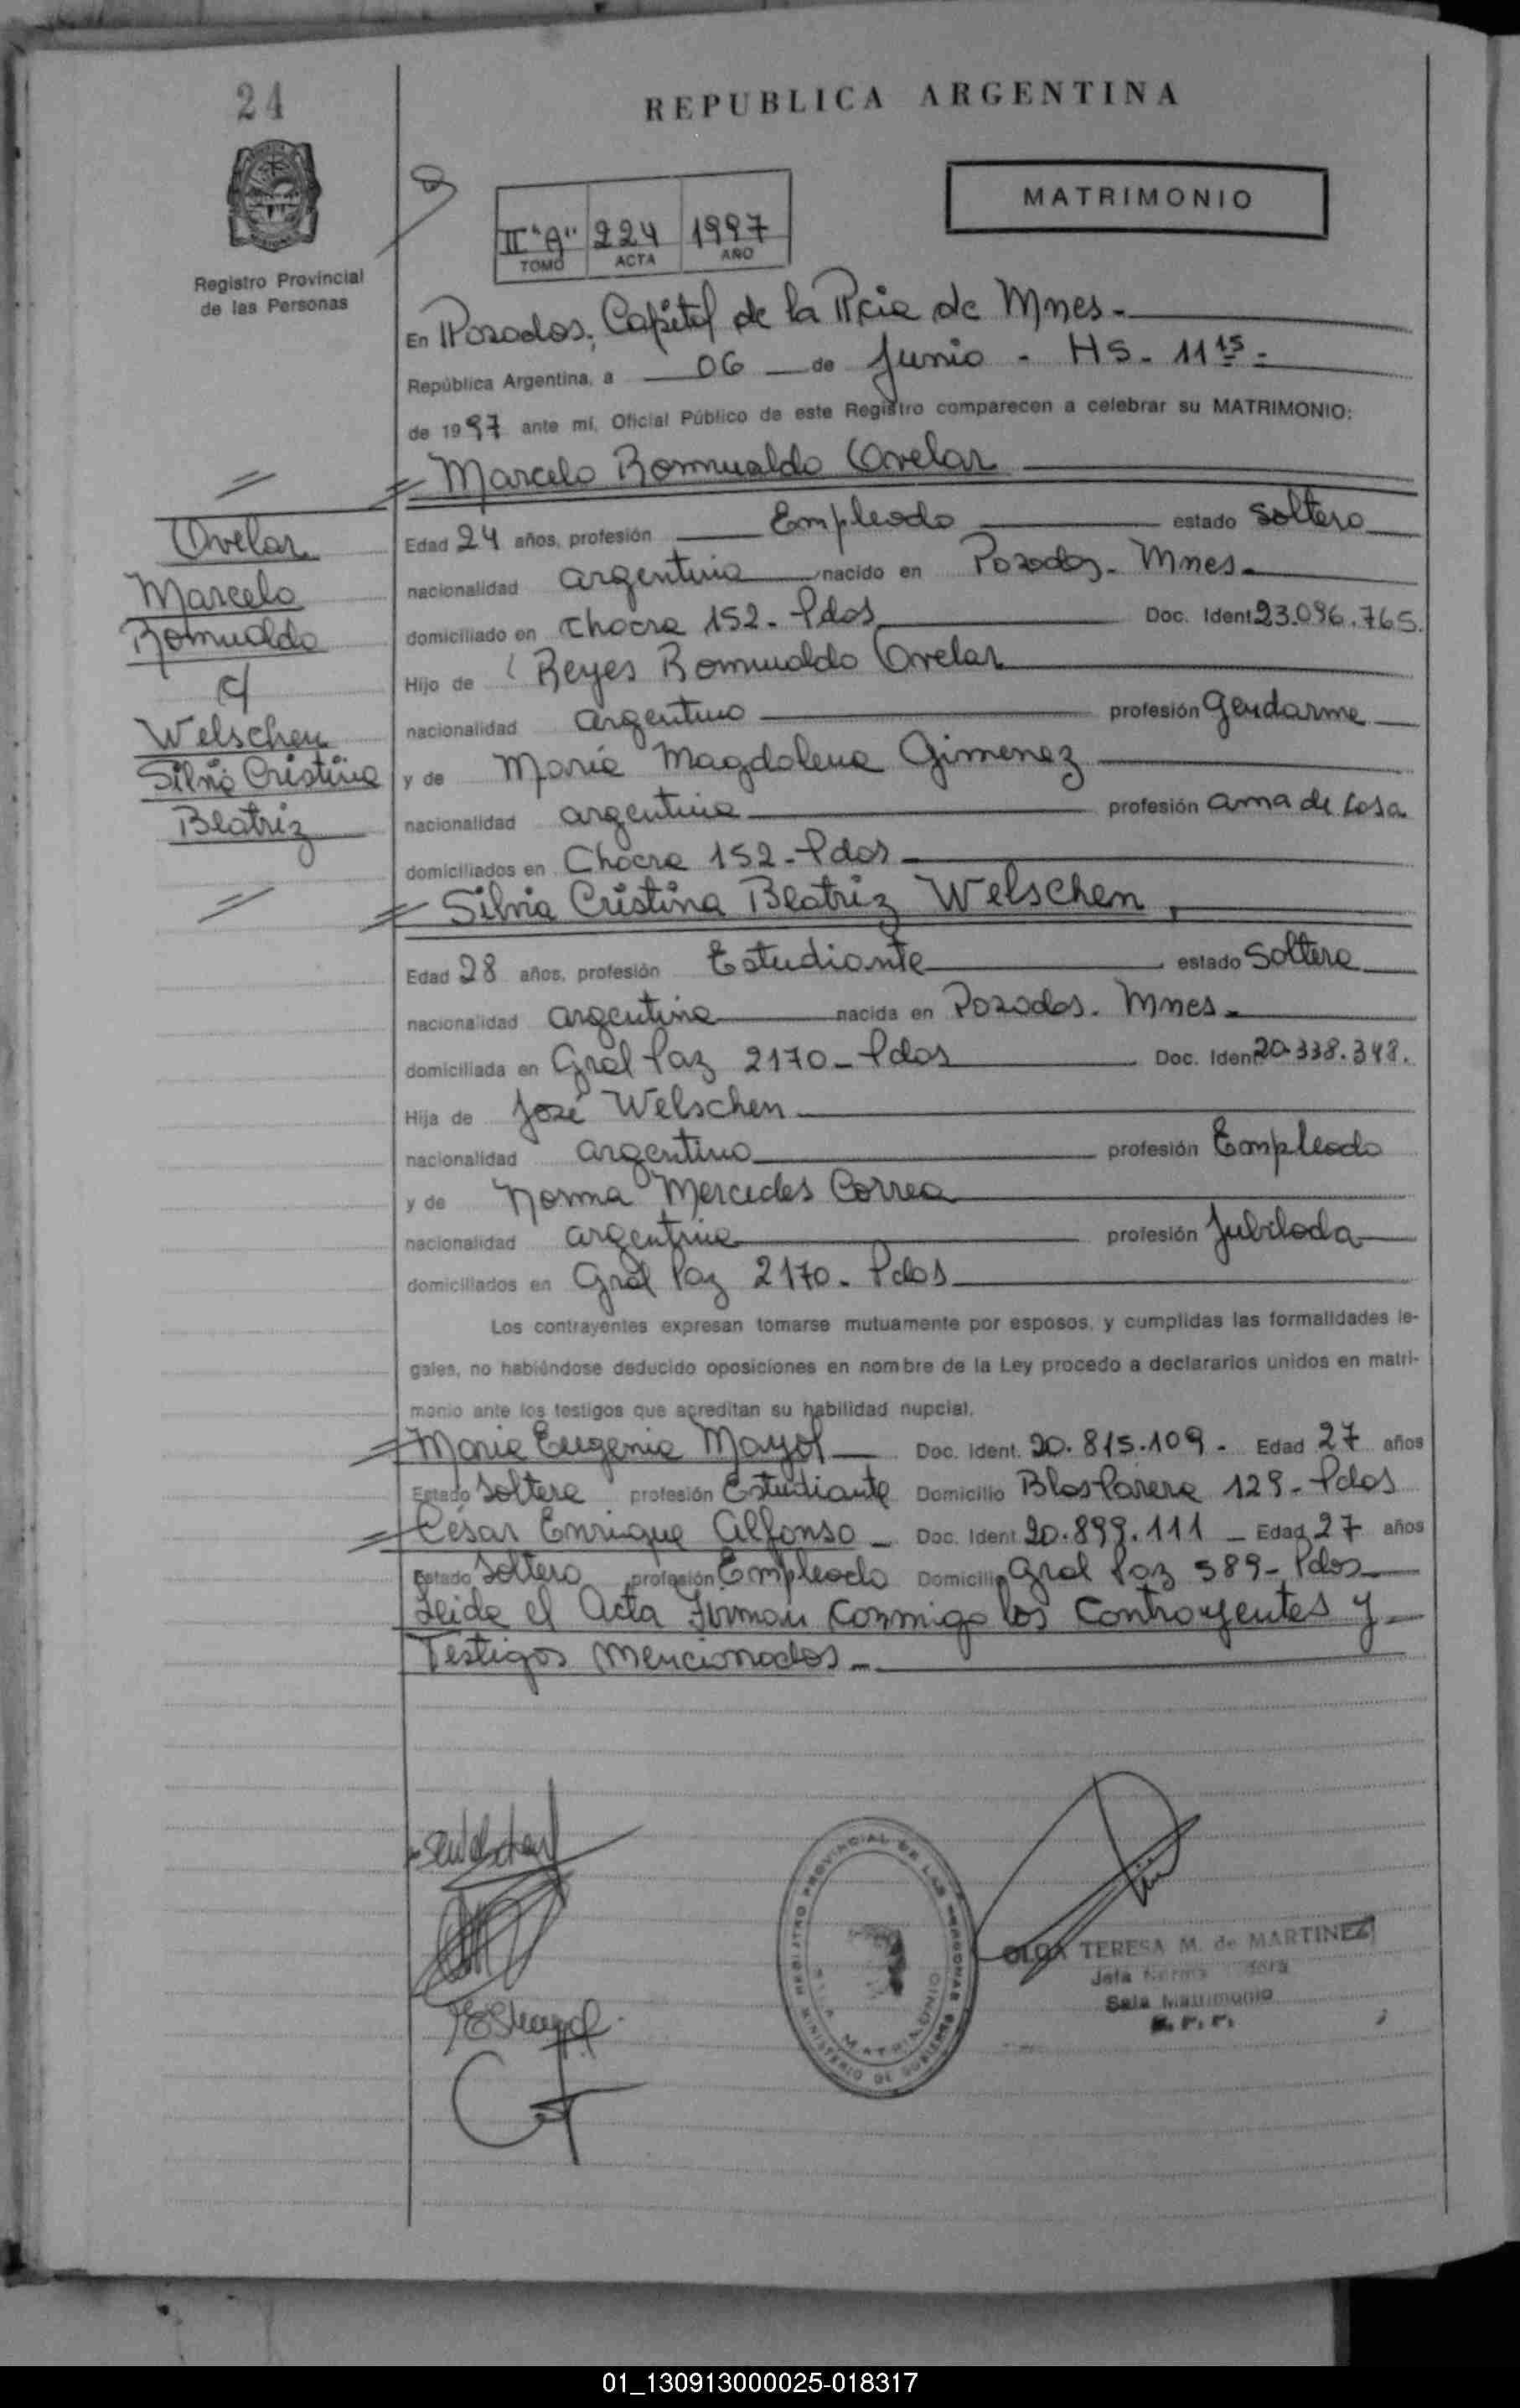 24
REPUBLICA ARGENTINA
MATRIMONIO
II "A" 224 1997
TOMO ACTA AÑO
Registro Provincial
de las Personas
En Posadas, Capital de la Pcia de Mnes.-
República Argentina, a 06 de Junio - HS- 11 15 -
de 1997 ante mí, Oficial Público de este Registro comparecen a celebrar su MATRIMONIO:
Marcelo Romualdo Ovelar
Ovelar
Marcelo
Romualdo
c/
Welschen
Silvia Cristina
Beatriz
Edad 24 años, profesión Empleado estado soltero
nacionalidad argentina nacido en Posadas- Mnes-
domiciliado en Chacra 152- Pdas Doc. Ident 23.096.765.
Hijo de Reyes Romualdo Ovelar
nacionalidad argentino profesión Gendarme
y de María Magdalena Gimenez
nacionalidad argentina profesión ama de casa
domiciliados en Chacra 152-Pdas
Silvia Cristina Beatriz Welschen
Edad 28 años, profesión Estudiante estado Soltera
nacionalidad argentina nacida en Posadas. Mnes-
domiciliada en Gral Paz 2170- Pdas Doc. Ident 20.338.348.
Hija de José Welschen
nacionalidad argentino profesión Empleado
y de Norma Mercedes Correa
nacionalidad argentina profesión Jubilada
domiciliados en Gral Paz 2170- Pdas
Los contrayentes expresan tomarse mutuamente por esposos, y cumplidas las formalidades le-
gales, no habiéndose deducido oposiciones en nombre de la Ley procedo a declararlos unidos en matri-
monio ante los testigos que acreditan su habilidad nupcial.
Maria Eugenia Mayol Doc. Ident. 20.815.109- Edad 27 años
Estado Soltera profesión Estudiante Domicilio Blas Parera 129- Pdas
Cesar Enrique Alfonso - Doc. Ident 20.899.111 - Edad 27 años
Estado Soltero profesión Empleado Domicilio Gral Paz 589- Pdas
Leida el Acta Firman conmigo los Contrayentes y
Testigos Mencionados-
REGISTRO PROVINCIAL DE LAS PERSONAS
SALA MATRIMONIO
MINISTERIO DE GOBIERNO
OLGA TERESA M. de MARTINEZ
Jefa
Sala Matrimonio
R. P. P.
01_130913000025-018317